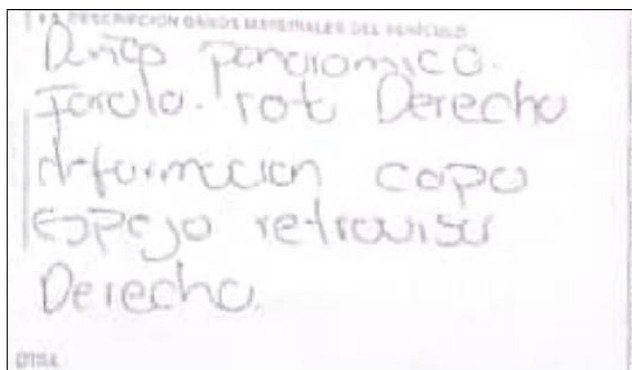 DESCRIPCIÓN DAÑOS MATERIALES DEL VEHÍCULO
Daños panoramico.
Farola. roto Derecho
deformacion capo
espejo retrovisor
Derecho.